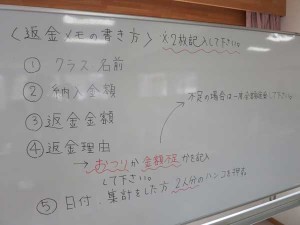 〈返金メモの書き方〉 ※2枚記入して下さい。
① クラス 名前
② 納入金額
③ 返金金額
不足の場合は一旦全額返金して下さい。
④ 返金理由
→ おつりか金額不足かを記入
して下さい。
⑤ 日付・集計をした方 2人分のハンコを押す。